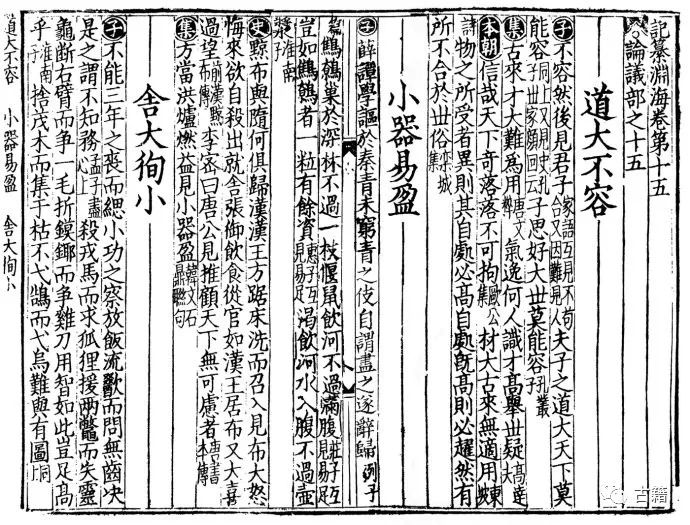 記纂淵海卷第十五
論議部之十五
道大不容
子不容然後見君子家語互見不苟合又因難見人夫子之道大天下莫
能容同上又見史孔子世家顔回云子思好大世莫能容孔叢
集古來才大難爲用唐文粹氣逸何人識才高舉世疑高達
本朝信哉天下奇落落不可拘歐公集材大古來無適用東
詩物之所受者異則其自處必高自處旣高則必趯然有
所不合於世俗欒城集
小器易盈
子薛譚學謳於秦青未窮青之伎自謂盡之遂辭歸列子
鷦鷯巢於深林不過一枝偃鼠飲河不過滿腹莊子互見易足
豈如鷦鷯者一粒有餘資惠子互見易足渴飲河水入腹不過壺
漿淮南子
史黥布與隨何俱歸漢漢王方踞床洗而召入見布大怒
悔來欲自殺出就舍張御飲食從官如漢王居布又大喜
過望前漢黥布傳李密曰唐公見推顧天下無可慮者唐書本傳
集方當洪爐燃益見小器盈韓文石鼎聯句
舍大徇小
子不能三年之喪而緦小功之察放飯流歠而問無齒决
是之謂不知務孟子盡心上殺戎馬而求狐狸援两鼈而失靈
龜斷右臂而争一毛折鏌鋣而争錐刀用智如此豈足髙
乎淮南子捨茂木而集于枯不弋鵠而弋烏難與有圖同上
道大不容 小器易盈 舍大徇小
古籍